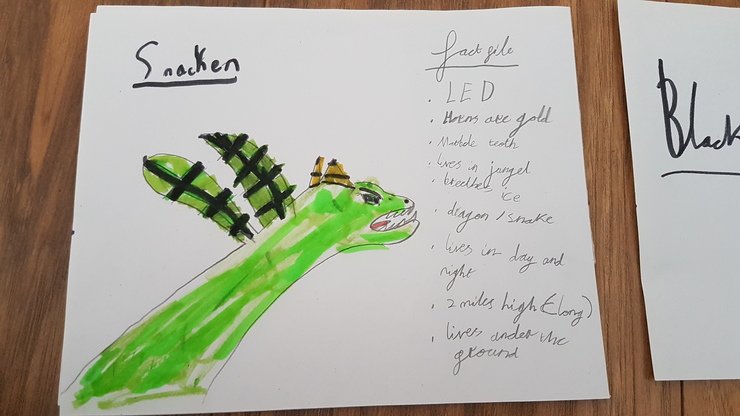 Snacken
fact file
. LED
. Horns are gold
. Marble teeth
. lives in jungel
. breathes ice
. dragon / snake
. lives in day and
night
. 2 miles high (long)
. lives under the
ground
Black